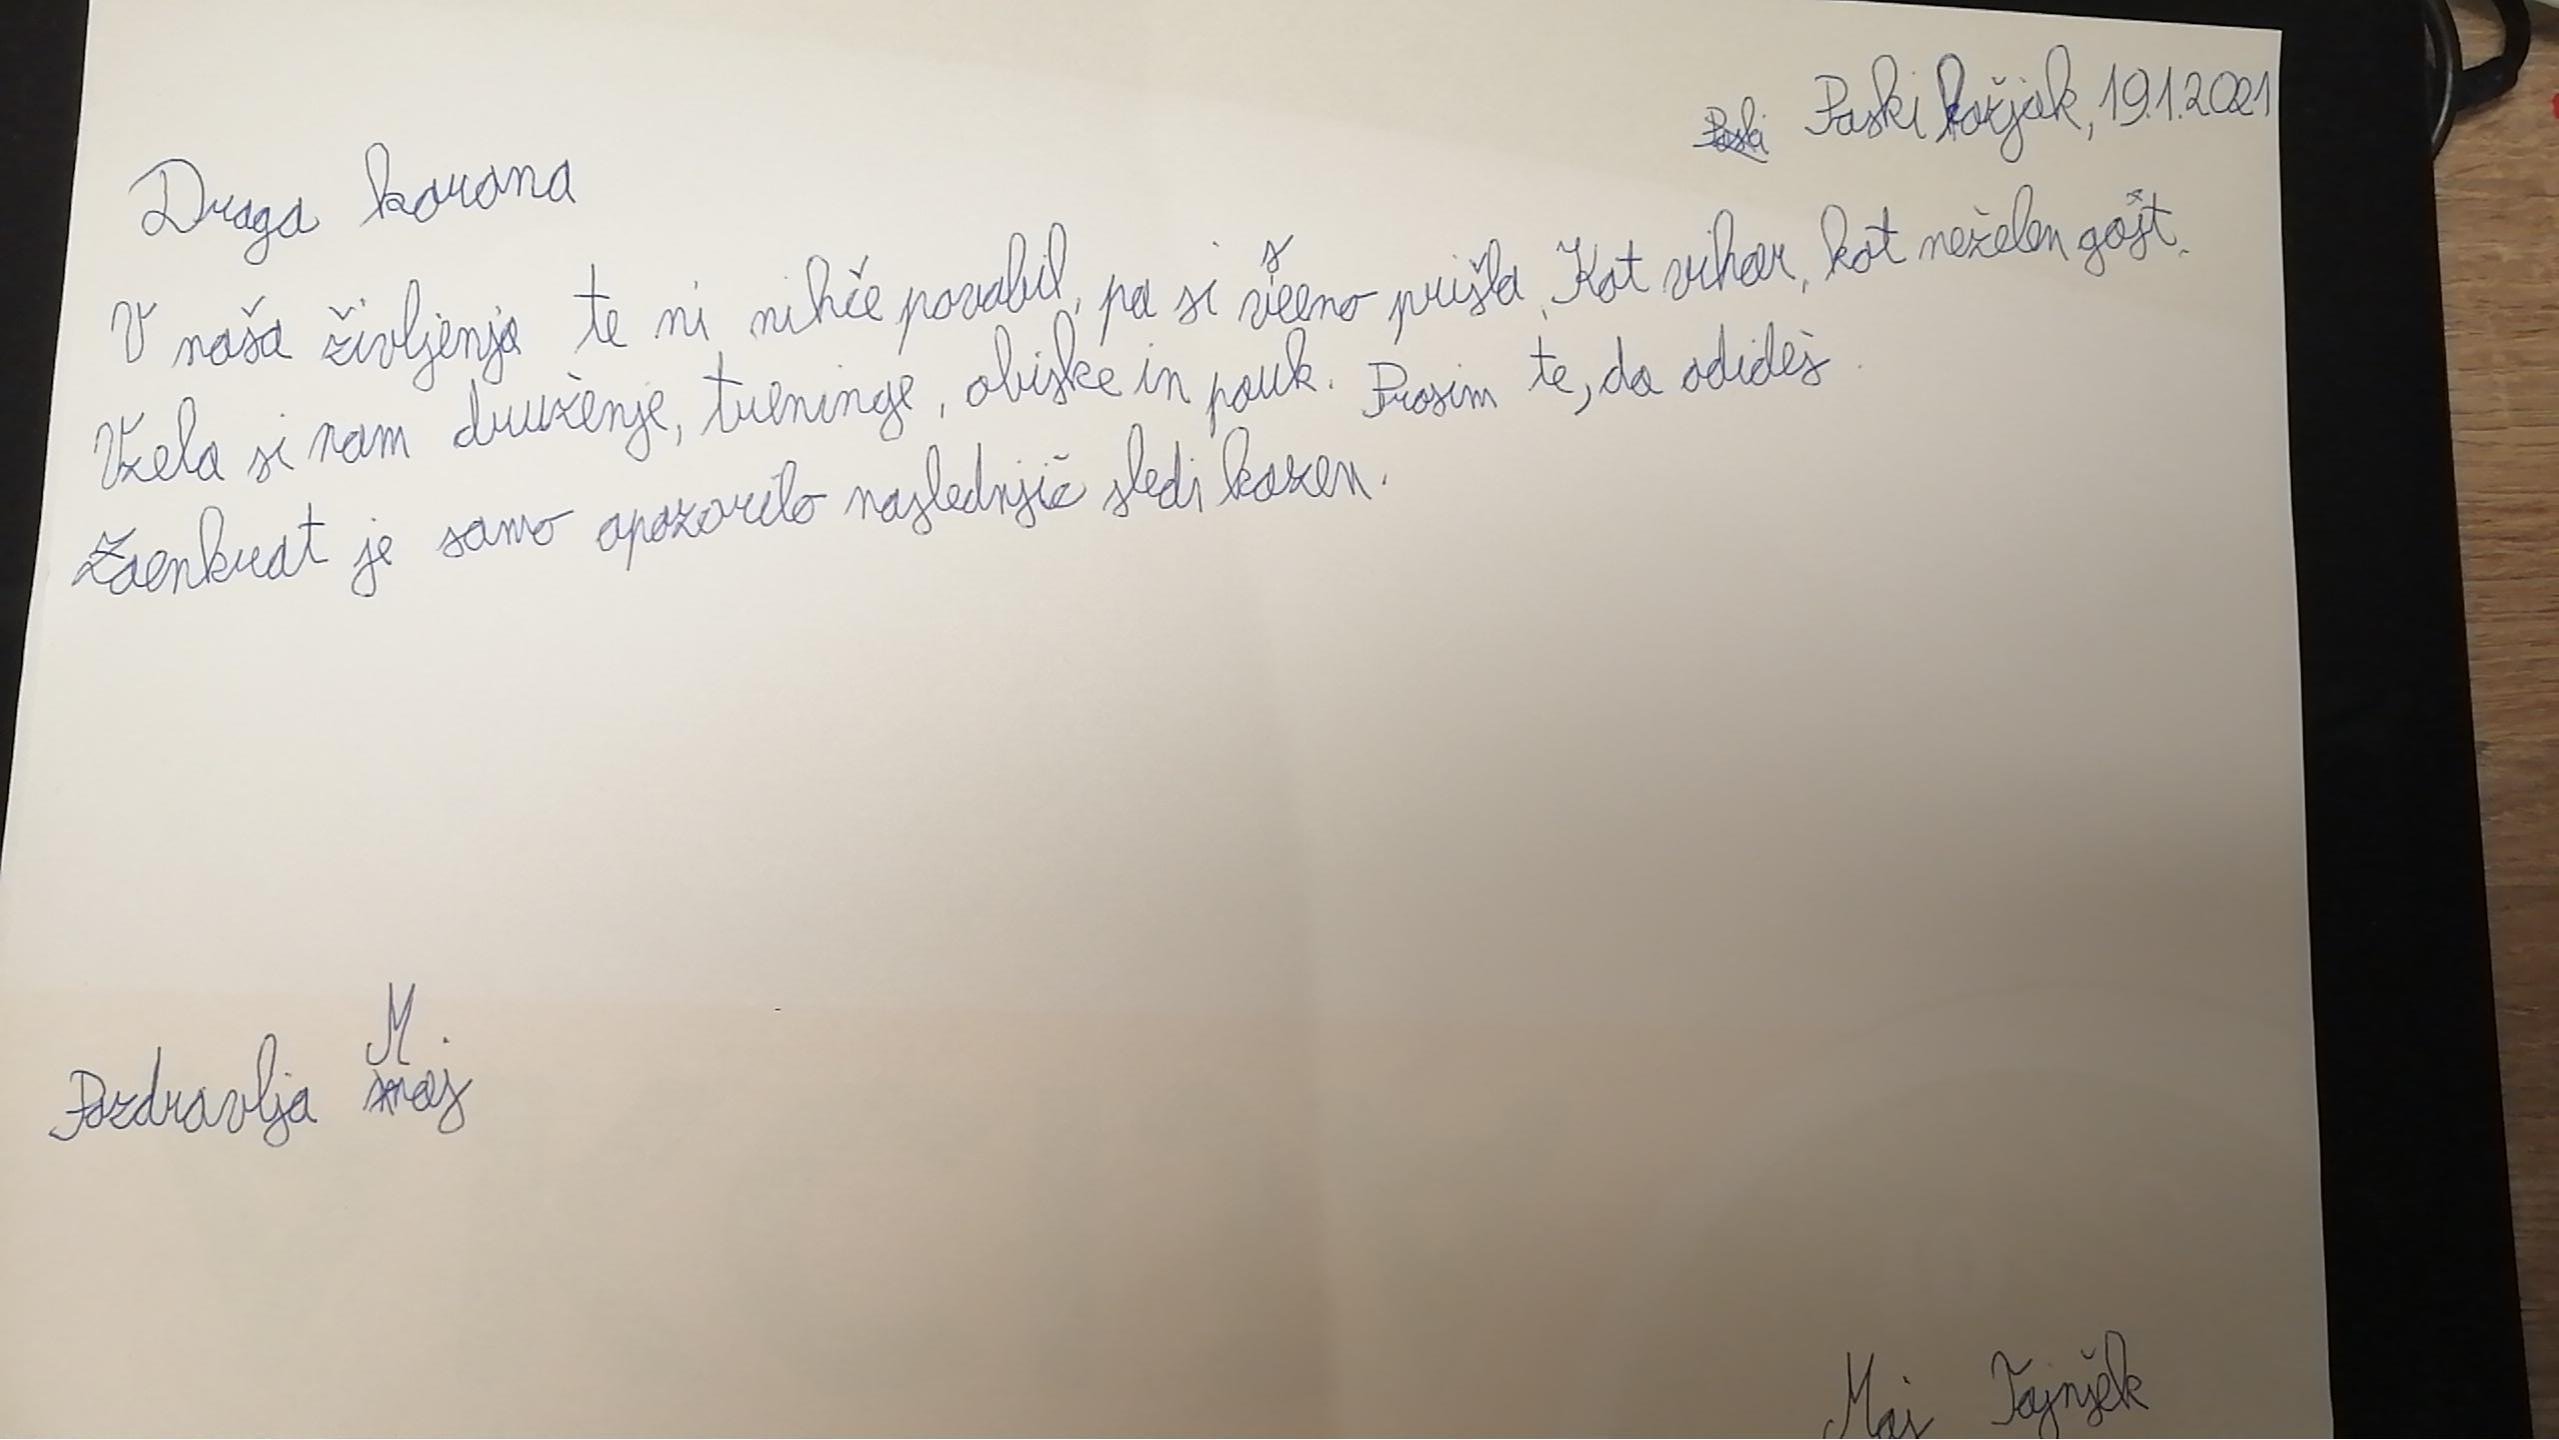 Paski Kozjak, 19.1.2021
Draga korona
V naša življenja te ni nihče povabil, pa si vseeno prišla. Kot vihar, kot neželen gost.
Vzela si nam druženje, treninge, obiske in pouk. Prosim te, da odideš.
Zaenkrat je samo opozorilo naslednjič sledi kazen.
Pozdravlja Maj
Maj Tajnšek